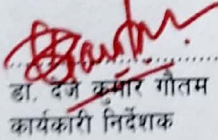 डा. देजे कुमार गौतम
कार्यकारी निर्देशक